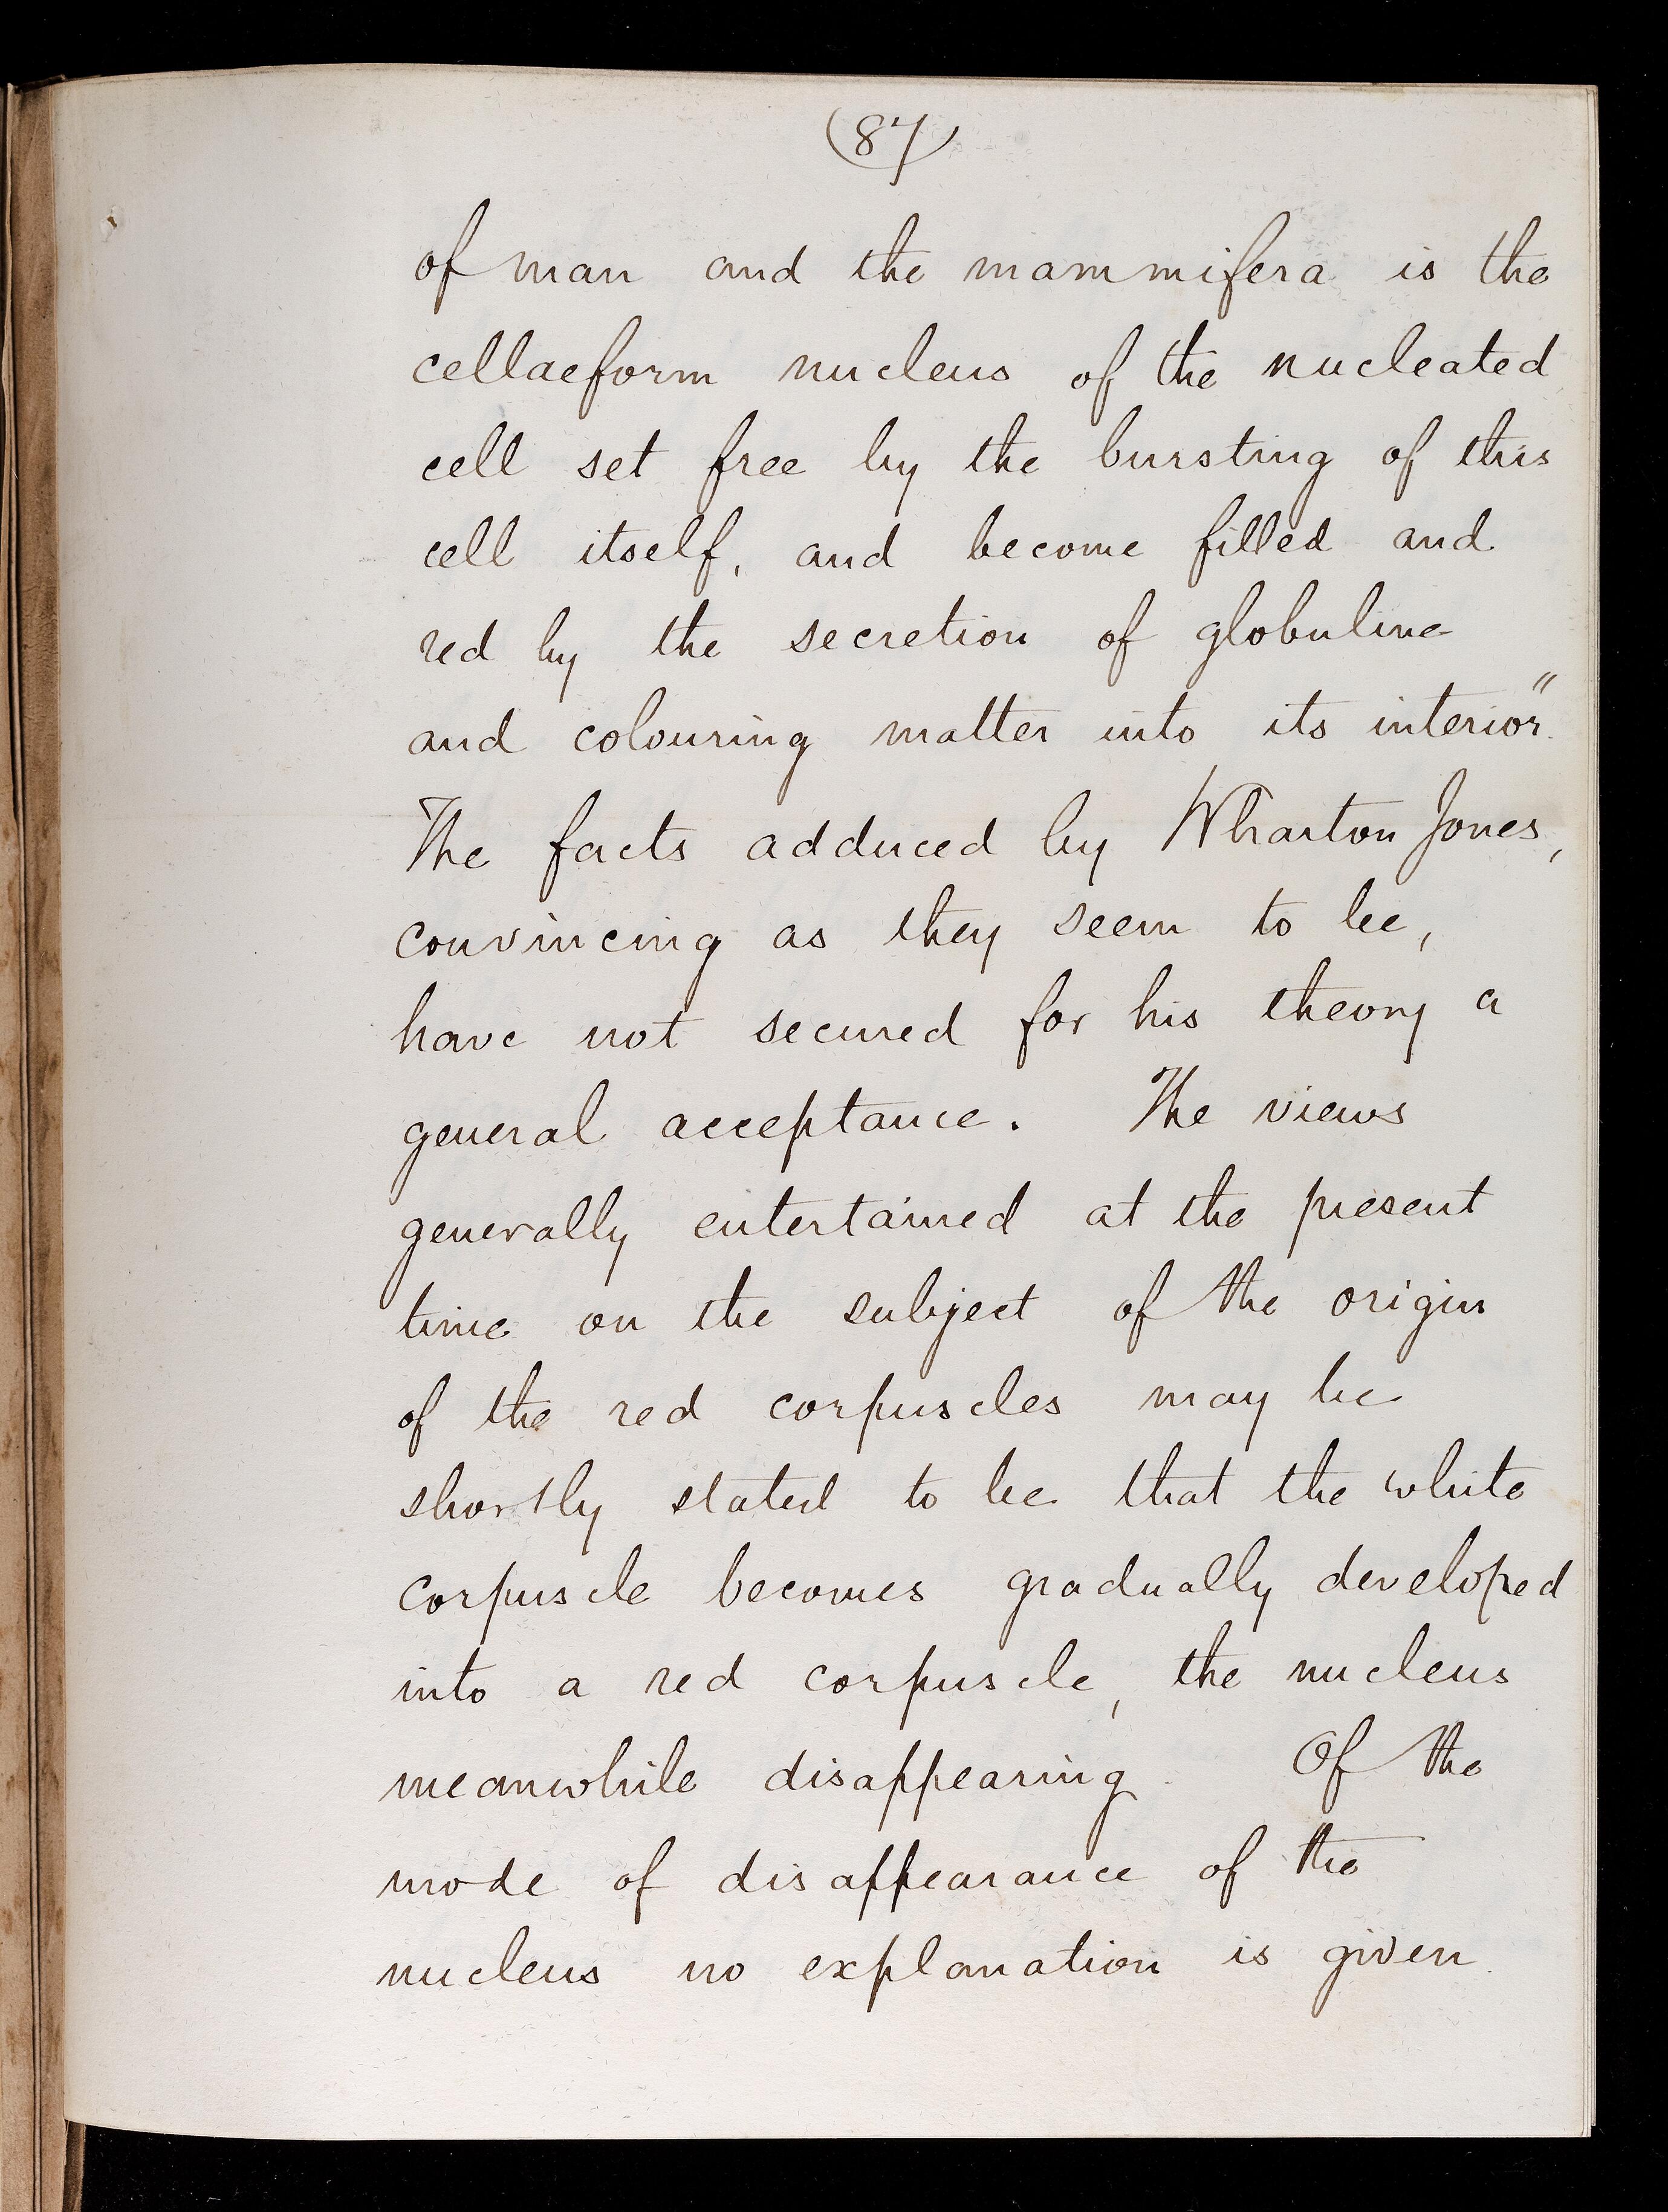 (87)
of man and the mammifera is the
cellaeform nucleus of the nucleated
cell set free by the bursting of this
cell itself, and become filled and
red by the secretion of globuline
and colouring matter into its interior."
The facts adduced by Wharton Jones,
convincing as they seem to be,
have not secured for his theory a
general acceptance. The views
generally entertained at the present
time on the subject of the origin
of the red corpuscles may be
shortly stated to be that the white
corpuscle becomes gradually developed
into a red corpuscle, the nucleus
meanwhile disappearing. Of the
mode of disappearance of the
nucleus no explanation is given.